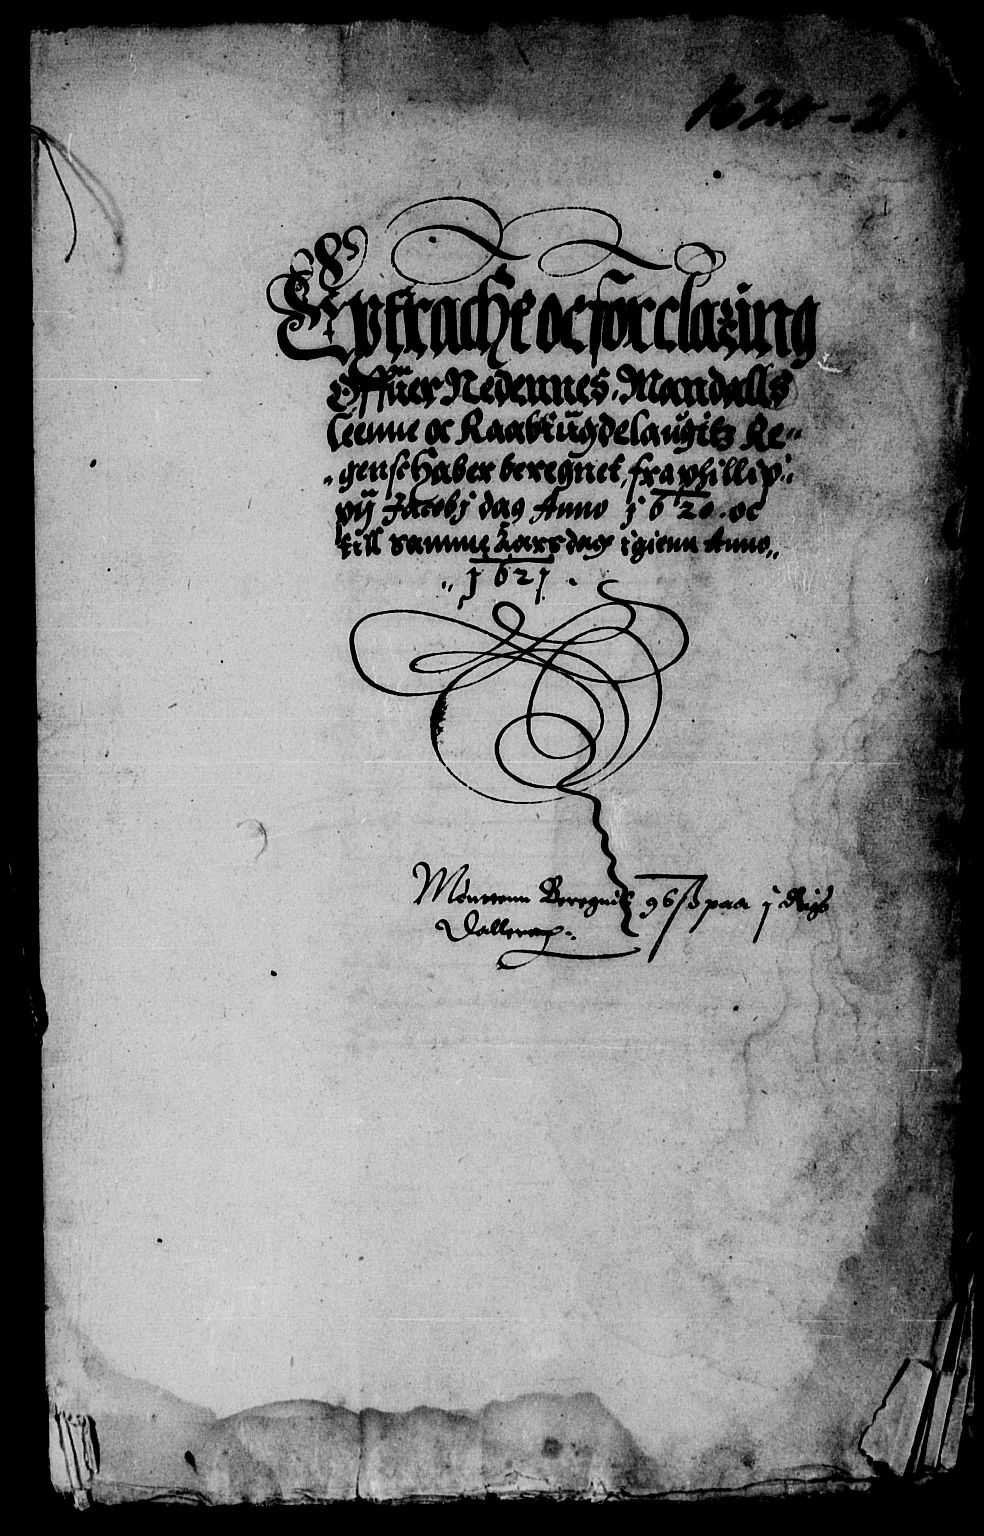 1620-21.
Extracht oc forclaring
Offuer Nedennes, Mandalls
Leenne oc Raabÿugdelaugitz Re-
genschaber beregnet, fra phillip-
pij Jacobj dag Anno j620. oc
till samme Aars dag igienn Anno
j62j.
Mønttenn Beregnit 96 ß paa j Rigs
Dallerr